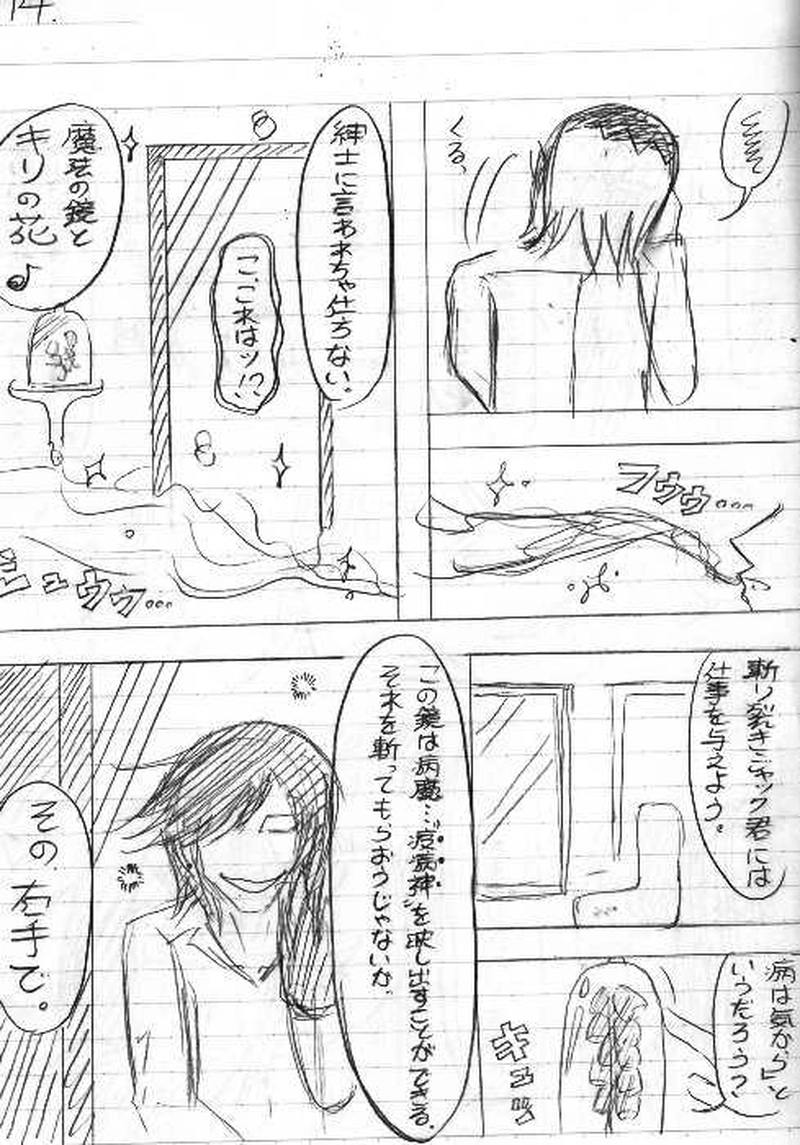 14.
くる、
フウゥ…
紳士に言われちゃ仕方ない。
こ、これはッ!?
魔法の鏡と
キリの花♪
ビュウゥ…
斬り裂きジャック君には
仕事を与えよう。
病は気から」と
いうだろう?
キュッ
この鏡は病魔…“疫病神”を映し出すことができる。
それを斬ってもらおうじゃないか。
その
右手で。